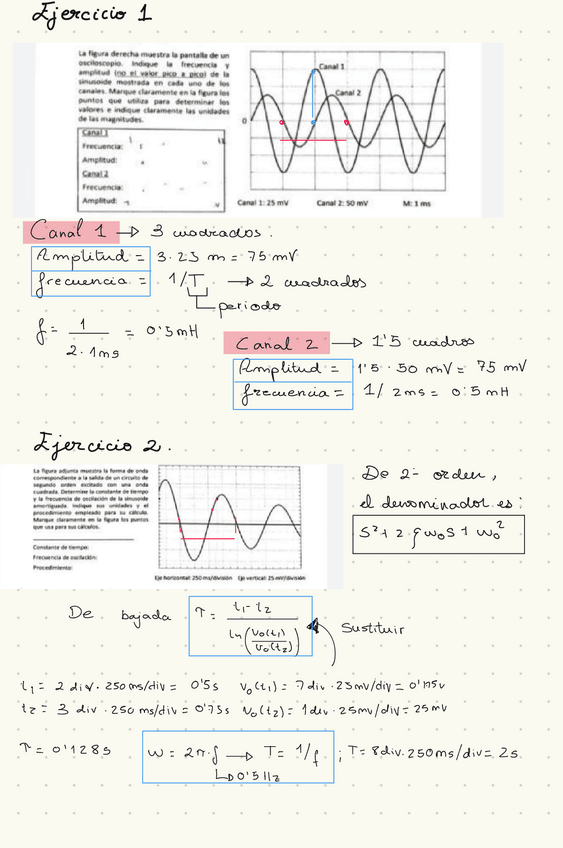 Ejercicio 1
La figura derecha muestra la pantalla de un
osciloscopio. Indique la frecuencia y
amplitud (no el valor pico a pico) de la
sinusoide mostrada en cada uno de los
canales. Marque claramente en la figura los
puntos que utiliza para determinar los
valores e indique claramente las unidades
de las magnitudes.
Canal 1
Frecuencia:
Amplitud:
Canal 2
Frecuencia:
Amplitud:
Canal 1
Canal 2
0
Canal 1: 25 mV Canal 2: 50 mV M: 1 ms
Canal 1 → 3 cuadrados.
Amplitud = 3·25 m = 75 mV
frecuencia = 1/T → 2 cuadrados
periodo
f = 1 / 2·1ms = 0'5mH
Canal 2 → 1'5 cuadros
Amplitud = 1'5 · 50 mV = 75 mV
frecuencia = 1/ 2ms = 0'5 mH
Ejercicio 2.
La figura adjunta muestra la forma de onda
correspondiente a la salida de un circuito de
segundo orden excitado con una onda
cuadrada. Determine la constante de tiempo
y la frecuencia de oscilación de la sinusoide
amortiguada. Indique sus unidades y el
procedimiento empleado para su cálculo.
Marque claramente en la figura los puntos
que usa para sus cálculos.
Constante de tiempo:
Frecuencia de oscilación:
Procedimiento:
Eje horizontal: 250 ms/división Eje vertical: 25 mV/división
De 2º orden,
el denominador es:
S² + 2·ζ w₀S + w₀²
De bajada τ = t₁-t₂ / ln(v₀(t₁)/v₀(t₂))
Sustituir
t₁ = 2 div · 250 ms/div = 0'5s v₀(t₁) = 7 div · 25mv/div = 0'175v
t₂ = 3 div · 250 ms/div = 0'75s v₀(t₂) = 1 div · 25mv/div = 25 mV
τ = 0'128s
w = 2π·f → T = 1/f ; T = 8div·250ms/div = 2s
↳ 0'5 Hz